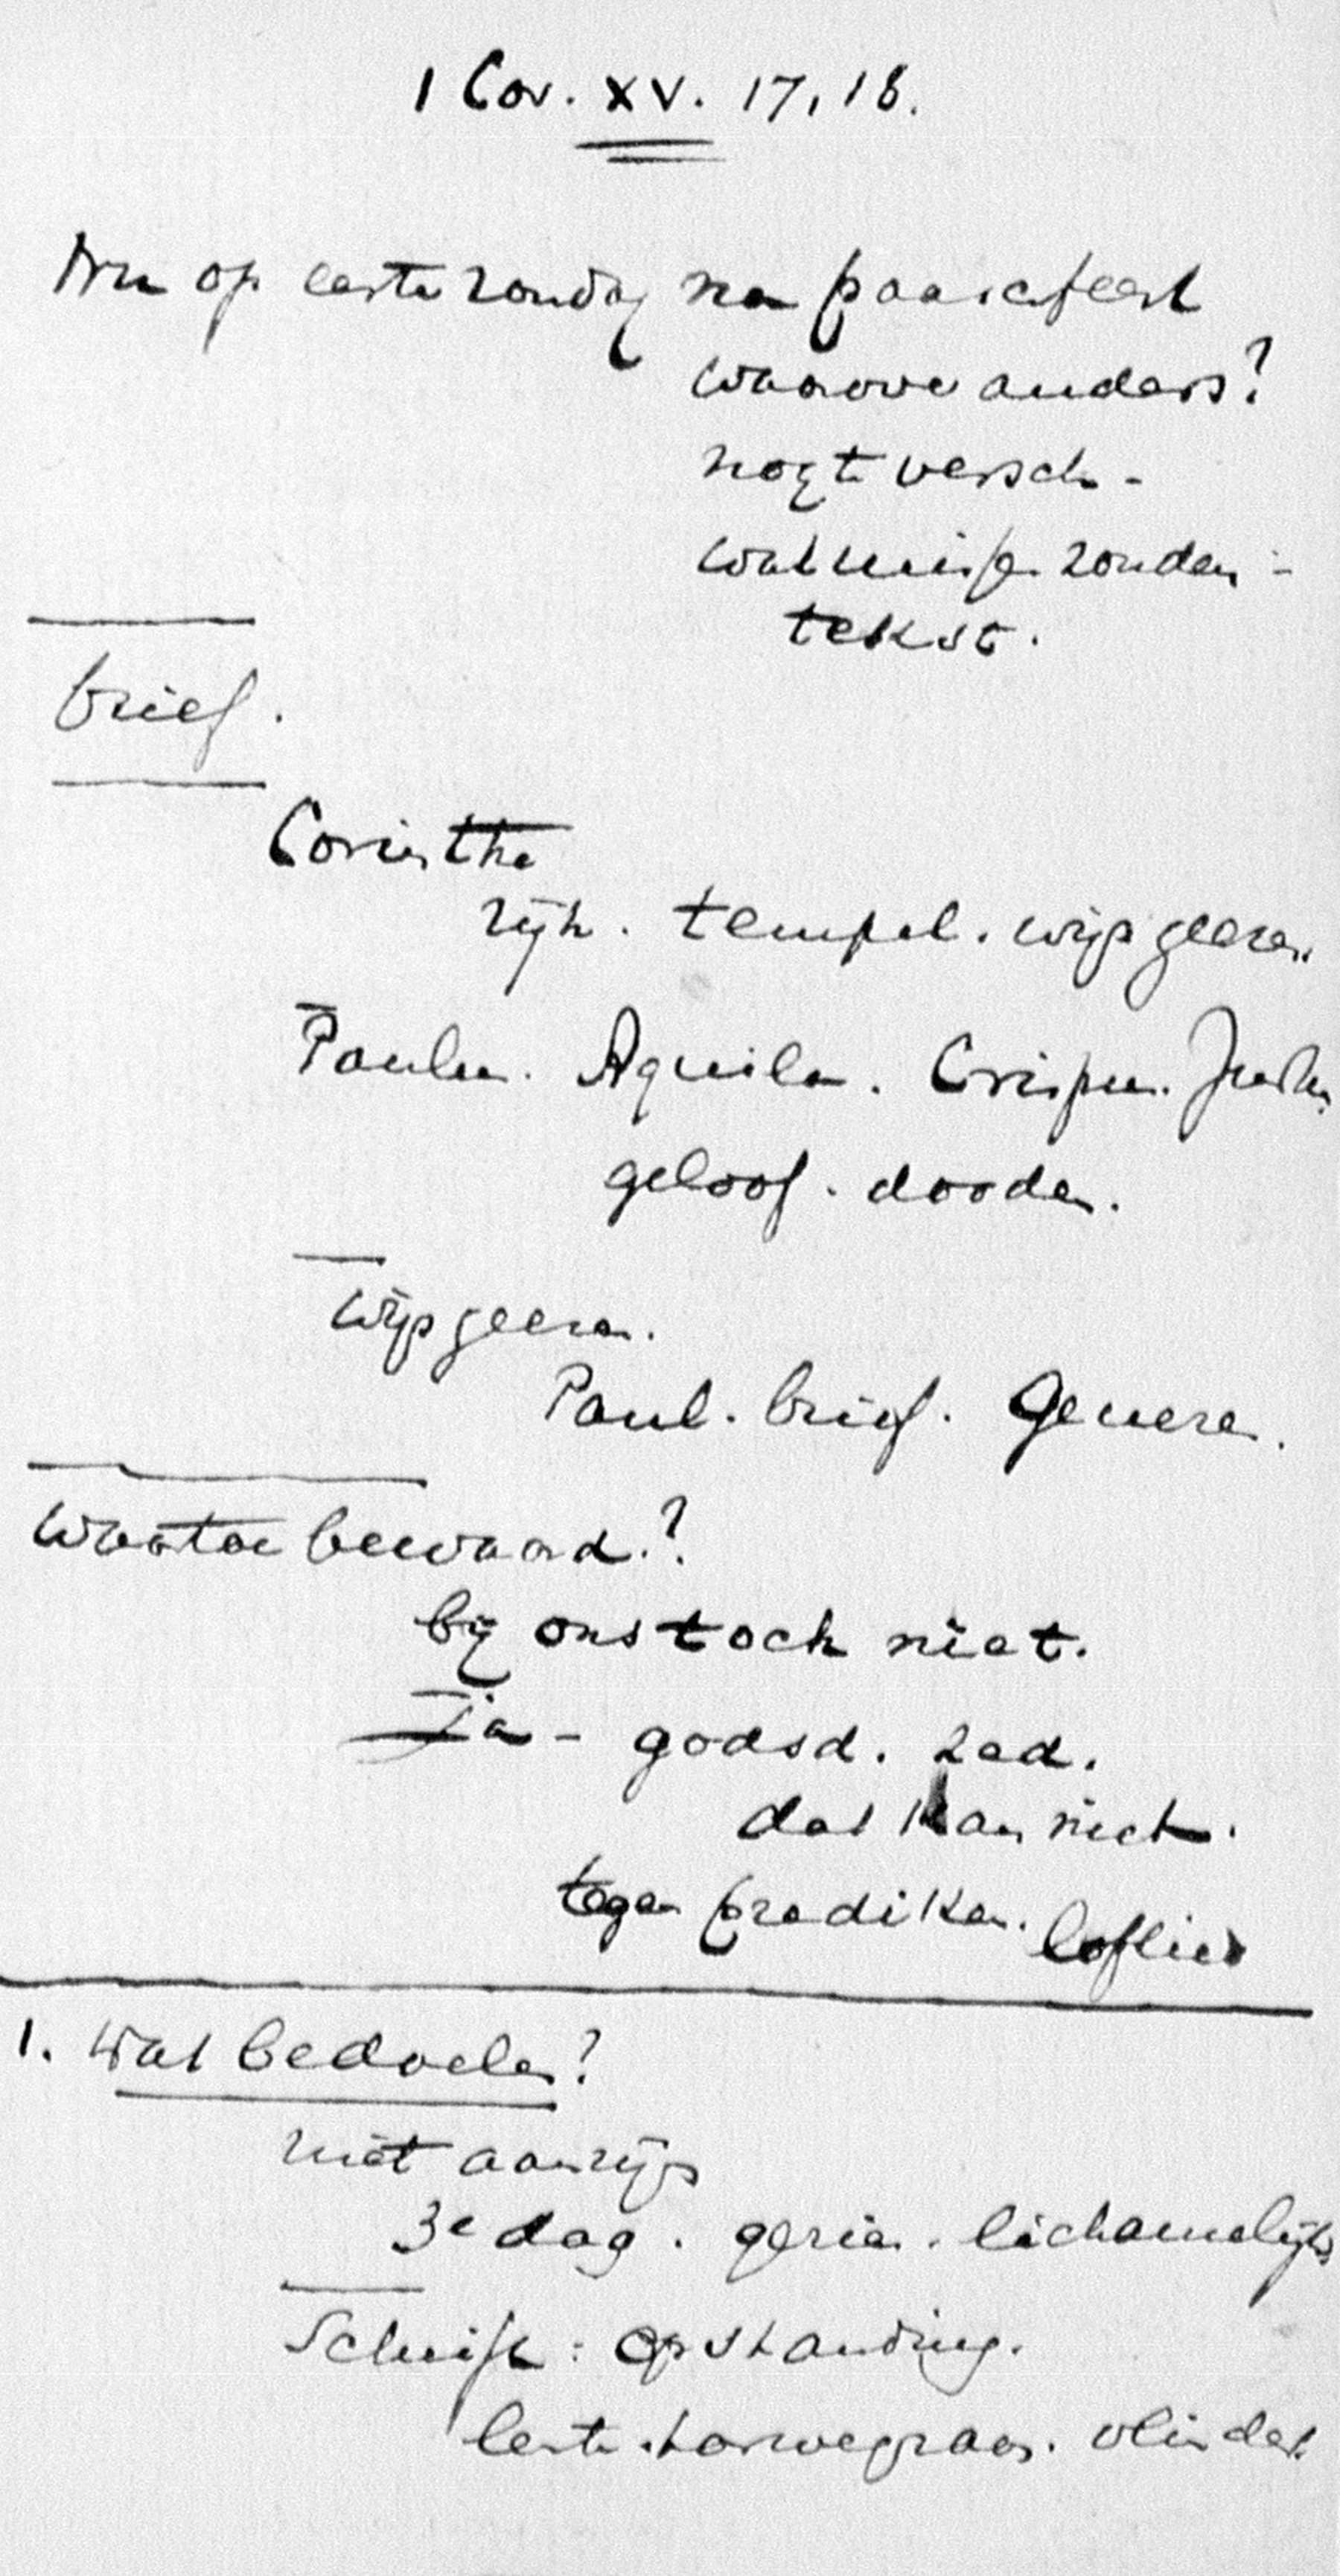 1 Cor. XV. 17, 18.
Nu op eerste zondag na paaschfeest
waarover anders?
nog t versch -
wat missen zouden -
tekst.
brief.
Corinthe
rijk. tempel. wijsgeeren
Paulus. Aquila. Crispus. Justus
geloof. dooden.
wijsgeeren.
Paul. brief.
Waartoe bewaard?
bij ons toch niet.
Ja - godsd. zed.
dat kan niet.
tegen prediken. loflied
1. Wat bedoelen?
niet
3e dag. lichamelijk
Schrift: opstanding.
lente. tarwegraan. vlinder